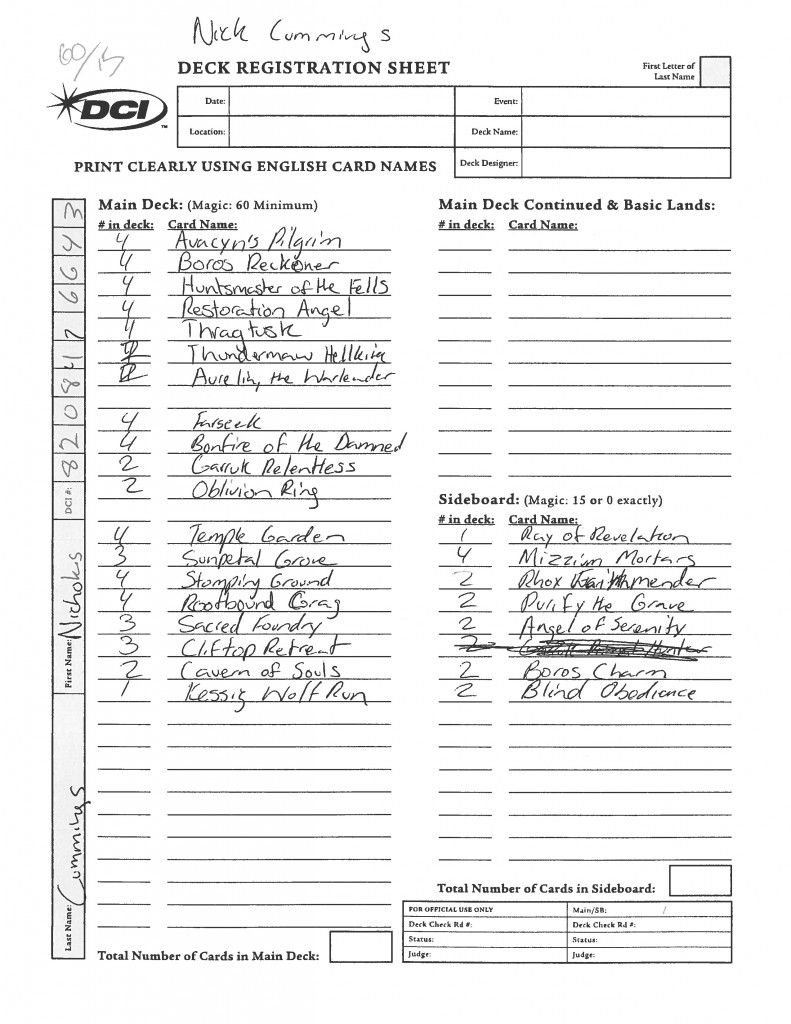 Nick Cummings
60/15
DECK REGISTRATION SHEET
First Letter of
Last Name
DCI™
Date:
Event:
Location:
Deck Name:
Deck Designer:
PRINT CLEARLY USING ENGLISH CARD NAMES
Main Deck: (Magic: 60 Minimum)
# in deck: Card Name:
4 Avacyn's Pilgrim
4 Boros Reckoner
4 Huntsmaster of the Fells
4 Restoration Angel
4 Thragtusk
Thundermaw Hellkite
Aurelia, the Warleader
4 Farseek
4 Bonfire of the Damned
2 Garruk Relentless
2 Oblivion Ring
4 Temple Garden
3 Sunpetal Grove
4 Stomping Ground
4 Rootbound Crag
3 Sacred Foundry
3 Cliftop Retreat
2 Cavern of Souls
1 Kessig Wolf Run
Total Number of Cards in Main Deck:
Main Deck Continued & Basic Lands:
# in deck: Card Name:
Sideboard: (Magic: 15 or 0 exactly)
# in deck: Card Name:
1 Ray of Revelation
4 Mizzium Mortars
2 Rhox Faithmender
2 Purify the Grave
2 Angel of Serenity
2
2 Boros Charm
2 Blind Obediance
Total Number of Cards in Sideboard:
FOR OFFICIAL USE ONLY
Main/SB: /
Deck Check Rd #:
Deck Check Rd #:
Status:
Status:
Judge:
Judge:
Last Name: Cummings
First Name: Nicholas
DCI #: 8208476643